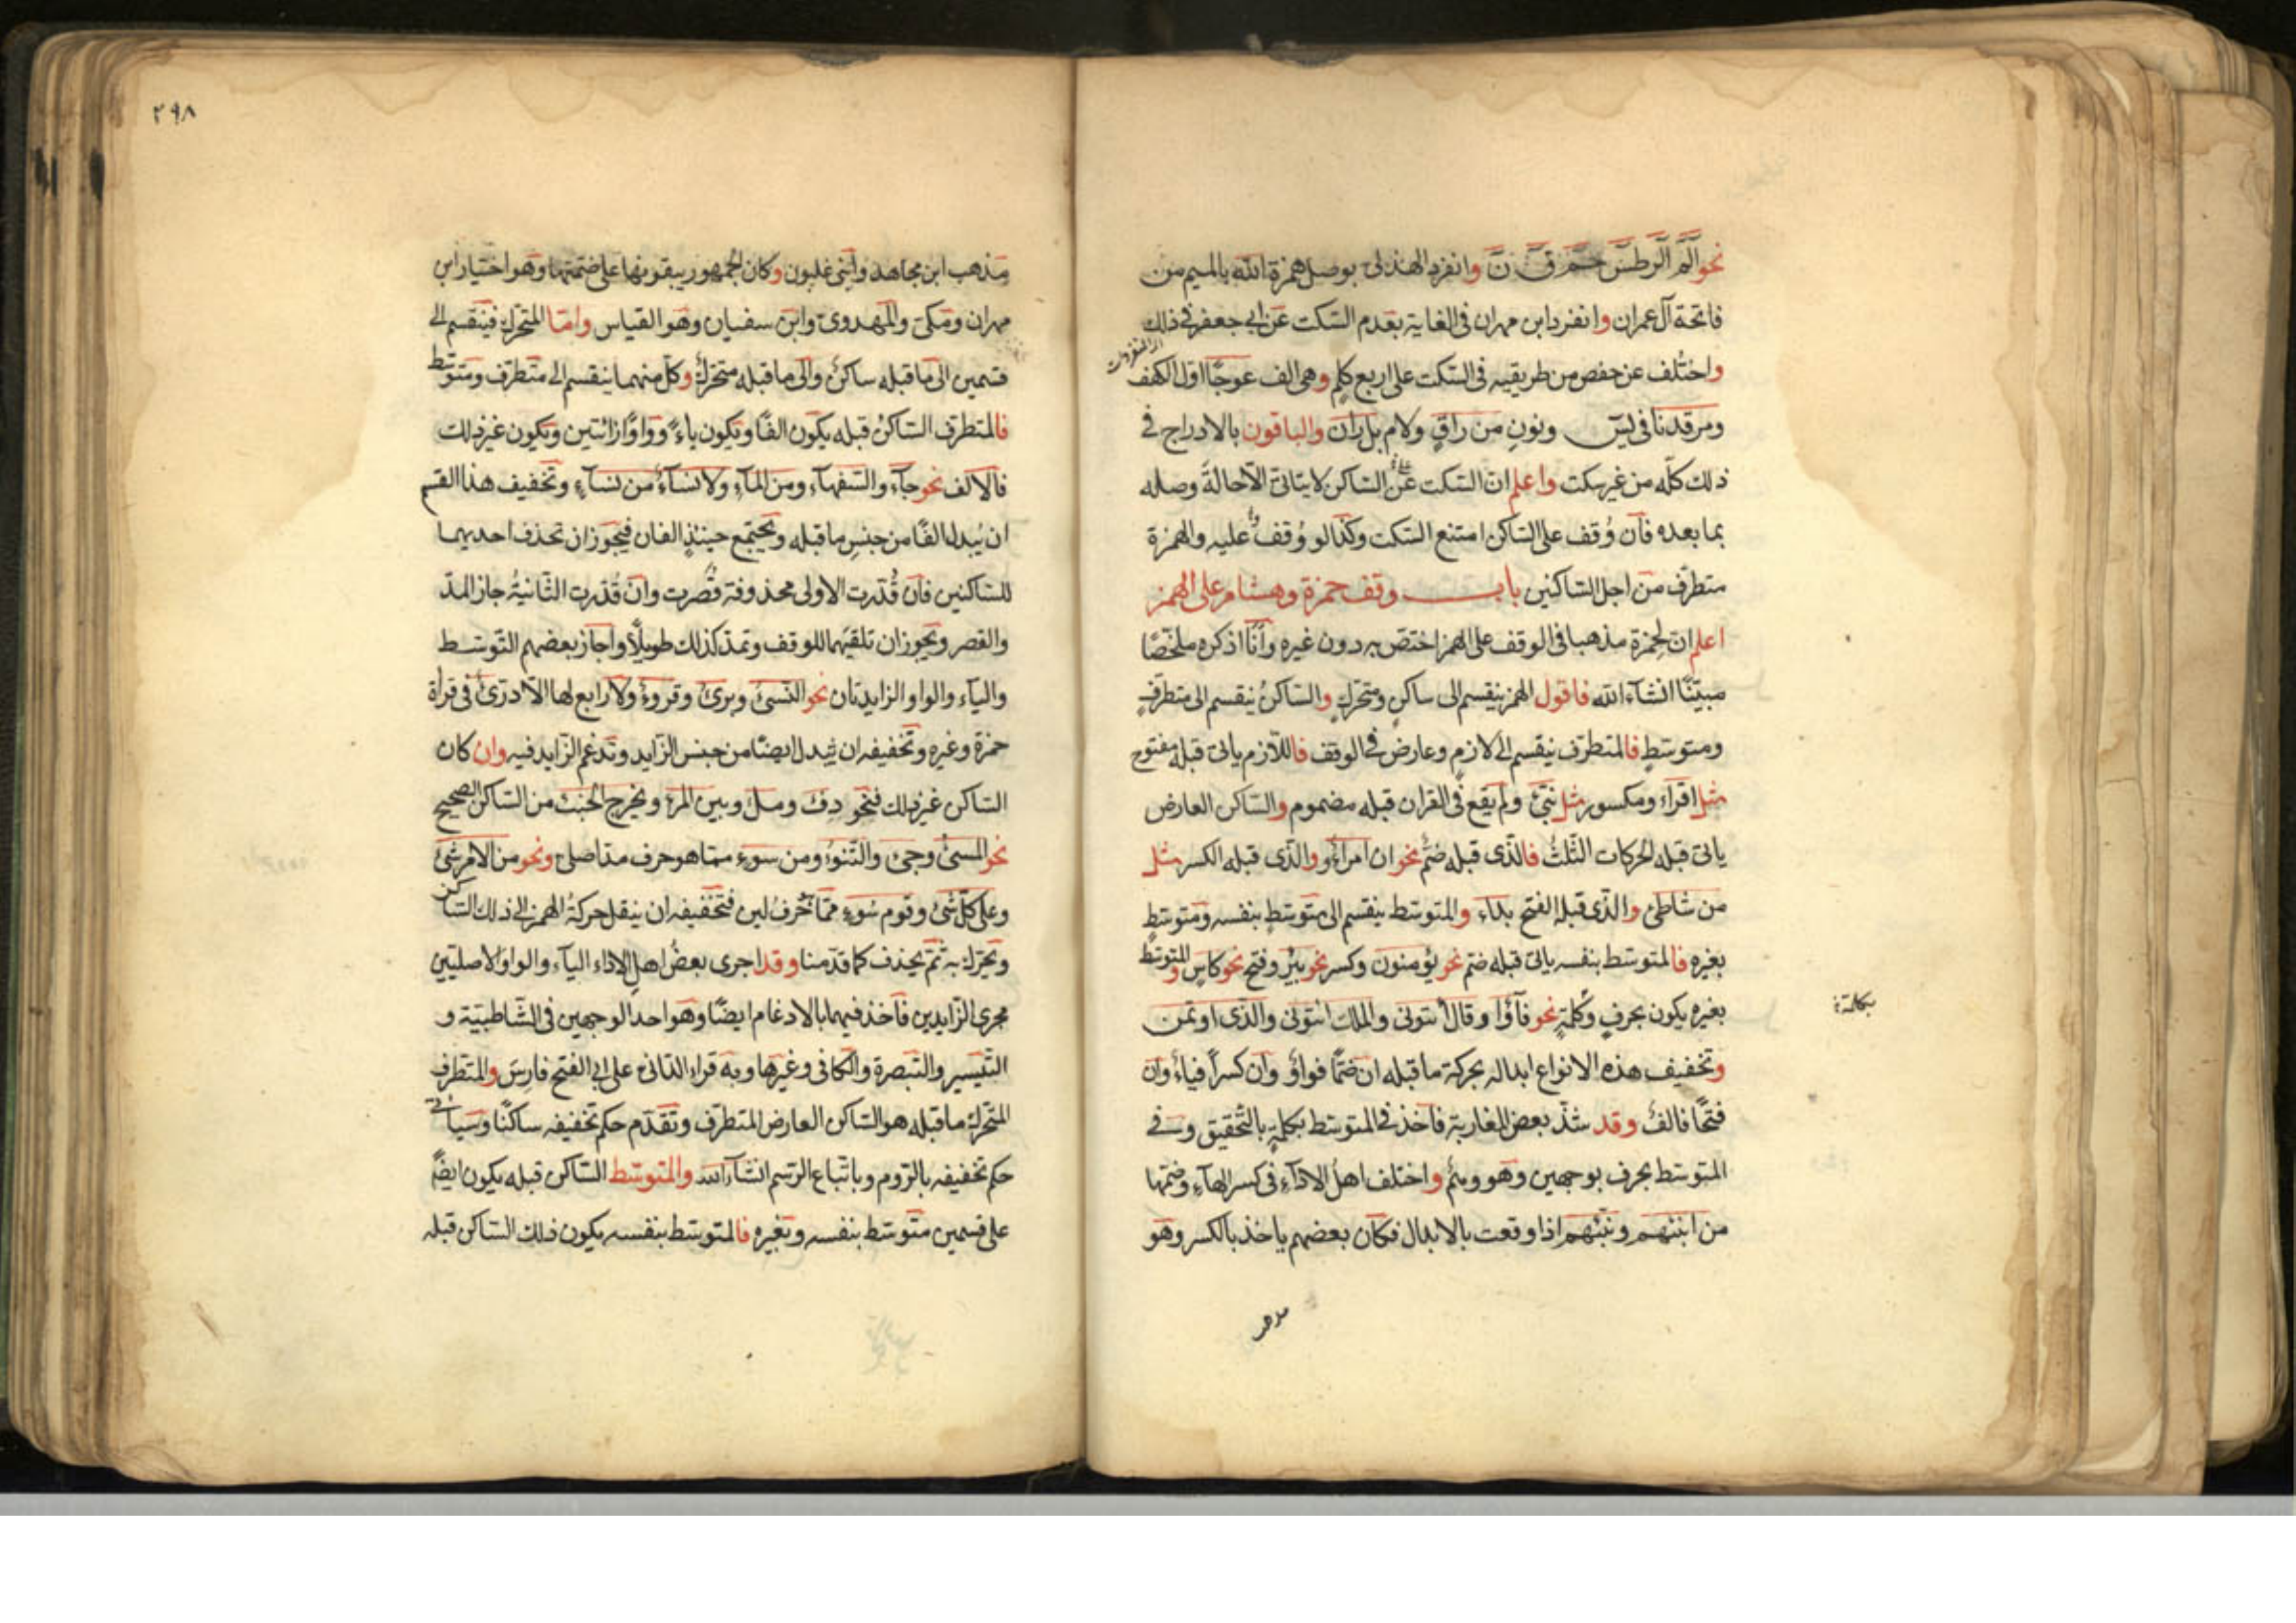 نحو الٓمّ الٓر طسٓ حمٓ قٓ نٓ وانفرد الهذلى بوصل همزة الله بالميم من
فاتحة آل عمران وانفرد ابن مهران فى الغاية بعدم السّكت عن ابى جعفر فى ذلك
واختُلف عن حفص من طريقيه فى السّكت على اربع كلمٍ وهى الف عوجًا اوّل الكهف
ومرقدنا فى يٓس ونون من راقٍ ولام بل ران والباقون بالادراج فى
ذلك كلّه من غير سكت واعلم انّ السّكت على السّاكن لا يتاتى الّا حالة وصله
بما بعده فان وُقف على السّاكن امتنع السّكت وكذا لو وُقف عليه والهمزة
متطرّف من اجل السّاكنين باب وقف حمزة وهشام على الهمز
اعلم انّ لحمزة مذهبا فى الوقف على الهمز اختصّ به دون غيره وانا اذكره ملخّصًا
مبيّنًا انشآء الله فاقول الهمز ينقسم الى ساكنٍ ومتحرّكٍ والسّاكنُ ينقسم الى متطرّفٍ
ومتوسّطٍ فالمتطرّف ينقسم الى لازمٍ وعارضٍ فى الوقف فاللّازم ياتى قبله مفتوح
مثل اقرَاء ومكسور مثل نبّئ ولم يقع فى القران قبله مضموم والسّاكن العارض
ياتى قبله الحركات الثّلثُ فالّذى قبله ضمٌّ نحو ان امراءٌو والّذى قبله الكسر مثل
من شاطئ والّذى قبله الفتح بداء والمتوسّط ينقسم الى متوسّطٍ بنفسه ومتوسّطٍ
بغيره فالمتوسّط بنفسه ياتى قبله ضمّ نحو يؤمنون وكسر نحو بئر وفتح نحو كاس والمتوسّط
بغيره يكون بحرفٍ وكلمةٍ نحو فآؤا وقال ائتونى والملك ائتونى والّذى اوتمن
بكلمة
وتخفيف هذه الانواع ابداله بحركة ما قبله ان ضمًّا فواوٌ وان كسراً فياءٌ وان
فتحًا فالفٌ وقد شذّ بعض المغاربة فاخذ فى المتوسّط بكلمةٍ بالتّحقيق وفى
المتوسّط بحرف بوجهين وهو وهمٌ واختلف اهل الادآءِ فى كسر الهآءِ وضمّها
من انبئهم ونبّئهم اذا وقعت بالابدال فكان بعضهم ياخذ بالكسر وهو
مذهب
٢٩٨
مذهب ابن مجاهد وابنى غلبون وكان الجمهور يبقونها على ضمّتها وهو اختيار ابن
مهران ومكىّ والمهدوىّ وابن سفيان وهو القياس وامّا المتحرّك فينقسم الى
قسمين الى ما قبله ساكنٌ والى ما قبله متحرّكٌ وكلّ منهما ينقسم الى متطرّف ومتوسّط
فالمتطرّف السّاكنُ قبله يكون الفًا ويكون ياءً وواوًا زائتين ويكون غير ذلك
فالالف نحو جآء والسّفهآء ومن المآءِ ولا نسآءٌ من نسآءٍ وتخفيف هذا القسم
ان يُبدل الفًا من جنس ما قبله ويجتمع حينئذٍ الفان فيجوز ان تحذف احديهما
للسّاكنين فان قُدّرت الاولى محذوفة قُصرت وان قُدّرت الثّانيةُ جاز المدّ
والقصر ويجوز ان تلقيهما للوقف وتمدّ كذلك طويلًا واجاز بعضهم التّوسّط
والياء والواو الزايدتان نحو النّسئ وبرئ وقروء ولا رابع لها الّا درّئ فى قراة
حمزة وغيره وتخفيفه ان يُبدل ايضًا من جنس الزّايد وتدغم الزّايد فيه وان كان
السّاكن غير ذلك فنحو دفء وملء وبين المرء ويخرج الخبء من السّاكن الصّحيح
نحو المسئ وجئ والتّنوء ومن سوء ممّا هو حرف مدّ اصلىّ ونحو من الامر شئ
وعلى كلّ شئ وقوم سَوء ممّا حرفُ لين فتخفيفه ان ينقل حركةُ الهمز الى ذلك السّاكن
ويحرّك به ثمّ يحذف كما قدّمنا وقد اجرى بعضُ اهل الاداء اليآء والواو الاصليّين
مجرى الزّايدين فاخذ فيهما بالادغام ايضًا وهو احد الوجهين فى الشّاطبيّة و
التّيسير والتّبصرة والكافى وغيرها وبه قراء الدّانى على ابى الفتح فارس والمتطرّف
المتحرّك ما قبله هو السّاكن العارض المتطرّف وتقدّم حكم تخفيفه ساكنًا وسياتى
حكم تخفيفه بالرّوم وباتّباع الرّسم انشآء الله والمتوسّط السّاكن قبله يكون ايضًا
على قسمين متوسّط بنفسه وبغيره فالمتوسّط بنفسه يكون ذلك السّاكن قبله